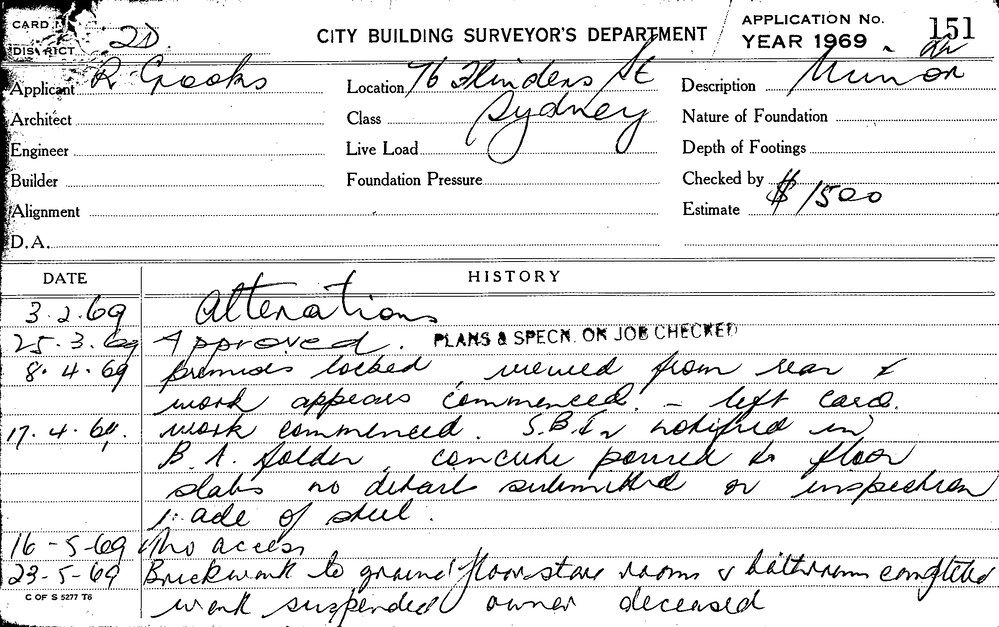 CARD
DISTRICT 2D.
CITY BUILDING SURVEYOR'S DEPARTMENT
APPLICATION No. 151
YEAR 1969
Applicant R Crooks
Location 76 Flinders St
Description Minor
Architect
Class Sydney
Nature of Foundation
Engineer
Live Load
Depth of Footings
Builder
Foundation Pressure
Checked by
Alignment
Estimate $1500
D.A.
DATE HISTORY
3.2.69 Alterations
25.3.69 Approved. PLANS & SPECN. ON JOB CHECKED
8.4.69 premises locked, viewed from rear &
work appears commenced. - left card.
17.4.69. work commenced. notified in
B.A. folder, concrete poured to floor
slabs no details submitted or inspection
made of steel.
16-5-69 no access
23-5-69 Brickwork to ground floor store rooms & bathroom completed
work suspended owner deceased
C OF S 5277 T6